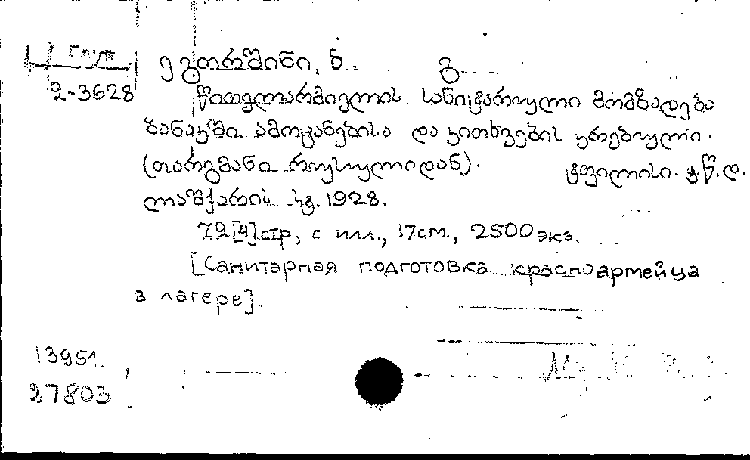 ევგორშინი, ნ. გ.
2-3628 წითელარმიელის სანიტარიული მომზადება
ბანაკში ამოცანებისა და კითხვების კრებული.
(თარგმანი რუსულიდან). ტფილისი. კ.წ.დ.
ლაშქარი ს.გ. 1928.
72[4]стр, с илл., 17см., 2500 экз.
[Санитарная подготовка красноармейца
в лагере].
13951.
27803